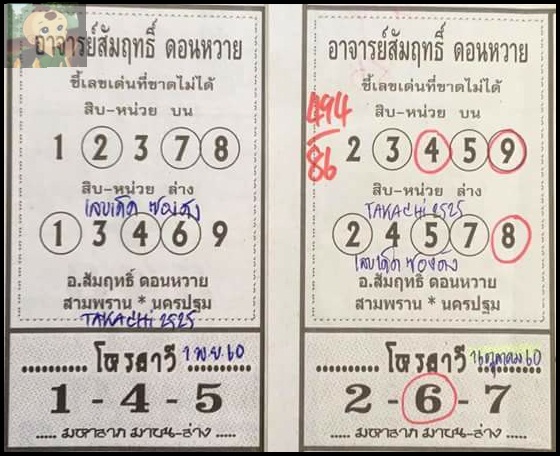 อาจารย์สัมฤทธิ์ ดอนหวาย
ชี้เลขเด่นที่ขาดไม่ได้
สิบ-หน่วย บน
1 2 3 7 8
สิบ-หน่วย ล่าง
เลขเด็ด ซองดัง
1 3 4 6 9
อ.สัมฤทธิ์ ดอนหวาย
สามพราน * นครปฐม
TAKACHI 2525
โหรสาวี
1 พ.ย. 60
1 - 4 - 5
..... มหาลาภ มาบน-ล่าง .....
อาจารย์สัมฤทธิ์ ดอนหวาย
ชี้เลขเด่นที่ขาดไม่ได้
494
86
สิบ-หน่วย บน
2 3 4 5 9
สิบ-หน่วย ล่าง
TAKACHI 2525
2 4 5 7 8
เลขเด็ด ซองดัง
อ.สัมฤทธิ์ ดอนหวาย
สามพราน * นครปฐม
โหรสาวี
16 ตุลาคม 60
2 - 6 - 7
..... มหาลาภ มาบน-ล่าง .....